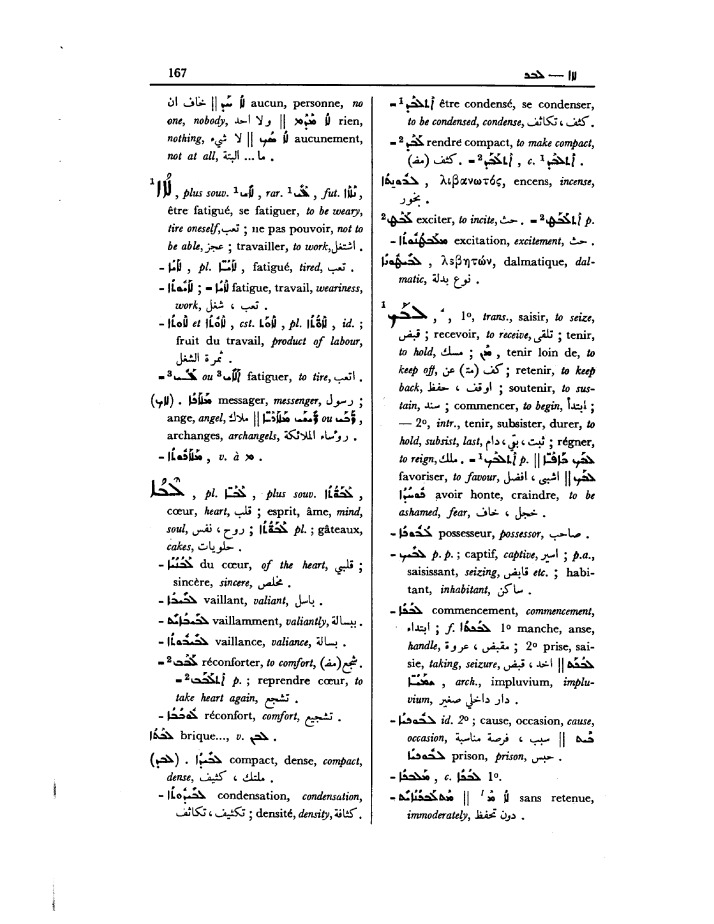 167
ܠܐܐ — ܠܒܕ
ܠܐ ܐܢܫ || خاف ان aucun, personne, no
one, nobody, ولا احد || ܠܐ ܡܕܡ rien,
nothing, لا شيء || ܠܐ ܣܟ aucunement,
not at all, ما ... البتة .
¹ܠܐܐ, plus souv. ¹ܠܐܝ, rar. ¹ܠܥܐ, fut. ܢܠܐܐ,
être fatigué, se fatiguer, to be weary,
tire oneself, تعب ; ne pas pouvoir, not to
be able, عجز ; travailler, to work, اشتغل .
- ܠܐܝܐ, pl. ܠܐܝܐ, fatigué, tired, تعب .
- ܠܐܝܘܬܐ ; = ܠܐܝܐ fatigue, travail, weariness,
work, تعب ، شغل .
- ܠܐܘܬܐ et ܠܐܘܬܐ, cst. ܠܐܘܬ, pl. ܠܐܘܬܐ, id. ;
fruit du travail, product of labour,
ثمرة الشغل .
ou fatiguer, to tire, اتعب .
(ܠܐܟ) . ܡܠܐܟܐ messager, messenger, رسول ;
ange, angel, ملاك || ܪܝܫܝ ܡܠܐܟܐ ou
archanges, archangels, رؤساء الملائكة .
- ܡܠܐܟܘܬܐ, v. à
ܠܒܐ, pl. ܠܒܐ, plus souv. ܠܒܘܬܐ,
cœur, heart, قلب ; esprit, âme, mind,
soul, روح ، نفس ; ܠܒܘܬܐ pl. ; gâteaux,
cakes, حلويات .
- ܠܒܢܝܐ du cœur, of the heart, قلبي ;
sincère, sincere, مخلص .
- ܠܒܝܒܐ vaillant, valiant, باسل .
- ܠܒܝܒܐܝܬ vaillamment, valiantly, ببسالة .
- ܠܒܝܒܘܬܐ vaillance, valiance, بسالة .
= ²ܠܒܒ réconforter, to comfort, شجع (مف) .
- ²ܐܬܠܒܒ p. ; reprendre cœur, to
take heart again, تشجع .
- ܠܘܒܒܐ réconfort, comfort, تشجيع .
ܠܒܬܐ brique..., v. ܠܒܢ .
(ܠܒܕ) . ܠܒܝܕܐ compact, dense, compact,
dense, ملتك ، كثيف .
- ܠܒܝܕܘܬܐ condensation, condensation,
تكثيف ، تكاثف ; densité, density, كثافة .
- ¹ܐܬܠܒܕ être condensé, se condenser,
to be condensed, condense, كثف ، تكاثف .
= ²ܠܒܕ rendre compact, to make compact,
كثف (مف) . = ²ܐܬܠܒܕ, c. ¹ܐܬܠܒܕ .
ܠܒܘܢܬܐ, λιβανωτός, encens, incense,
بخور .
²ܠܒܛ exciter, to incite, حث . = ²ܐܬܠܒܛ p.
- excitation, excitement, حث .
λεβητών, dalmatique, dal-
matic, نوع بدلة .
¹ܠܒܟ, 1º, trans., saisir, to seize,
قبض ; recevoir, to receive, تلقى ; tenir,
to hold, مسك ; ܡܢ, tenir loin de, to
keep off, كف (مت) عن ; retenir, to keep
back, اوقف ، حفظ ; soutenir, to sus-
tain, سند ; commencer, to begin, ابتدأ ;
— 2º, intr., tenir, subsister, durer, to
hold, subsist, last, ثبت ، بقي ، دام ; régner,
to reign, ملك . = ¹ܐܬܠܒܟ p. || ܠܒܟ ܒܐܦܐ
favoriser, to favour, اشبى ، افضل || ܠܒܟ
avoir honte, craindre, to be
ashamed, fear, خجل ، خاف .
- ܠܒܘܟܐ possesseur, possessor, صاحب .
- ܠܒܝܟ p. p. ; captif, captive, اسير ; p.a.,
saisissant, seizing, قابض etc. ; habi-
tant, inhabitant, ساكن .
- ܠܒܟܐ commencement, commencement,
ابتداء ; f. ܠܒܟܬܐ 1º manche, anse,
handle, مقبض ، عروة ; 2º prise, sai-
sie, taking, seizure, اخذ ، قبض ||
, arch., impluvium, implu-
vium, دار داخلي صغير .
- id. 2º ; cause, occasion, cause,
occasion, سبب ، فرصة مناسبة ||
prison, prison, حبس .
- ܡܠܒܟܐ, c. ܠܒܟܐ 1º.
- || ܠܐ ܡ' sans retenue,
immoderately, دون تحفظ .